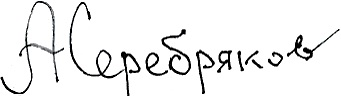 АСеребряков